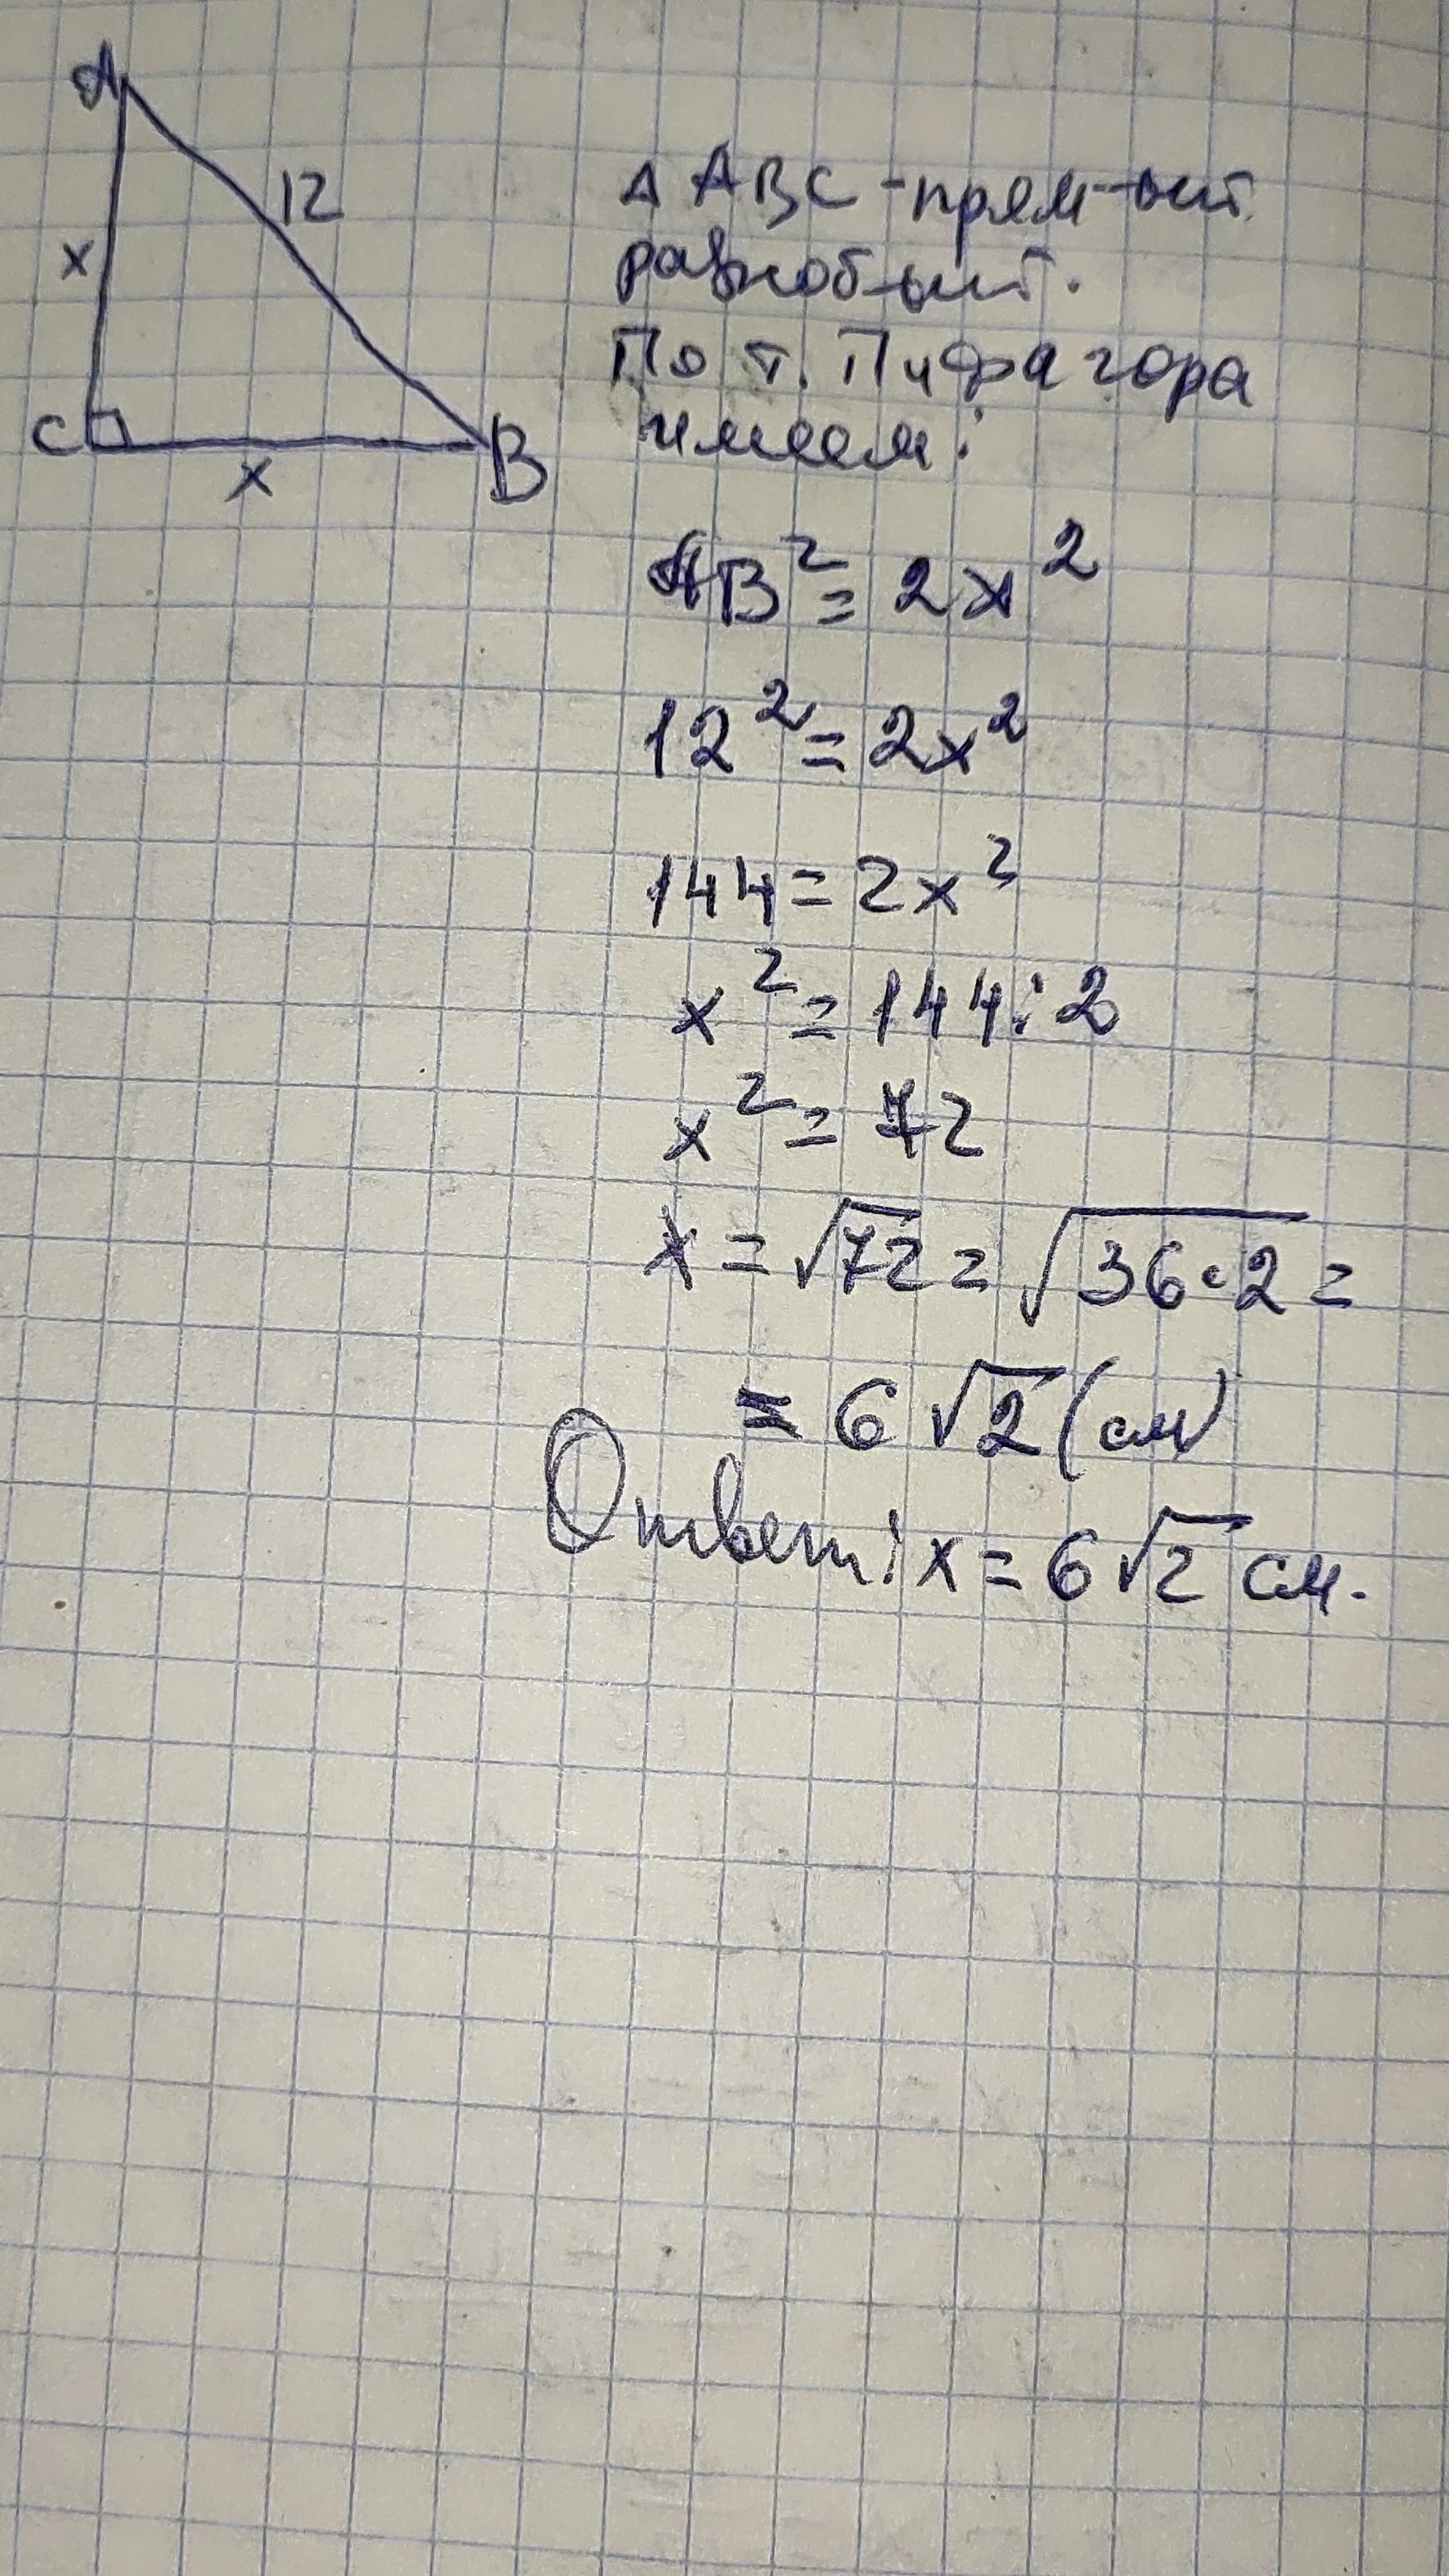 A
12
x
C
x
B
Δ ABC - прям-ый
равноб-ый.
По т. Пифагора
имеем:
AB² = 2x²
12² = 2x²
144 = 2x²
x² = 144 : 2
x² = 72
x = √72 = √36·2 =
= 6√2 (см)
Ответ: x = 6√2 см.